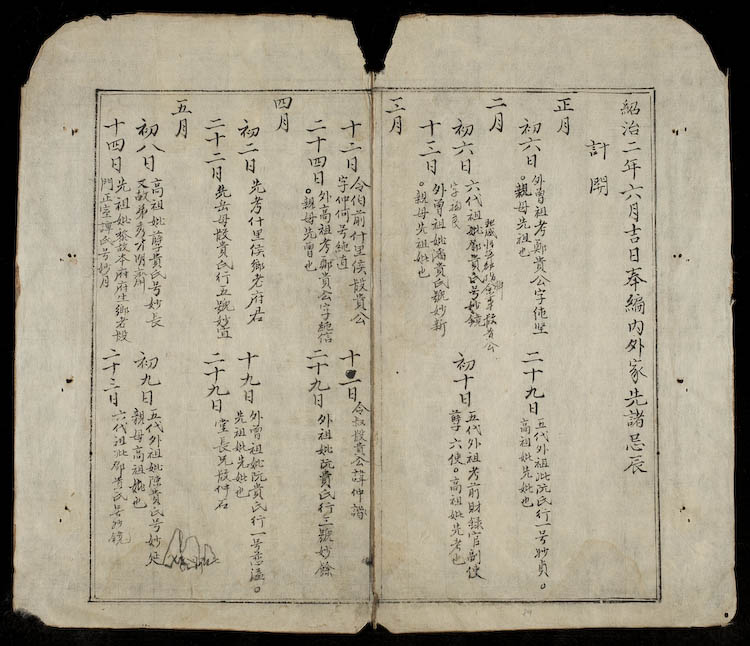 紹治二年六月吉日奉編內外家先諸忌辰
計開
正月
初六日
外曾祖考鄭貴公字純堅
。親母先祖也
二十九日
五代外祖妣阮氏行一号妙貞。
高祖妣先妣也
二月
初六日
六代祖妣鄧貴氏号妙鏡
初十日
五代外祖考前財錄官副使
薛六使。高祖妣先考也
十三日
外曾祖妣潘貴氏號妙新
。親母先祖妣也
三月
十二日
令伯前什里侯段貴公
字仲何号純直
令叔段貴公諱仲諧
二十四日
外高祖考鄭貴公字純信
。親母先曾也
二十九日
外祖妣阮貴氏行三號妙餘
四月
初二日
先考什里侯鄉老府君
十九日
外曾祖妣阮貴氏行一号慈溢。
先祖妣先妣也
二十二日
先岳母段貴氏行五號妙直
二十九日
堂長兄段仲石
五月
初八日
高祖妣薛貴氏号妙長
又故弟秀才明齋
初九日
五代外祖妣陳貴氏号妙延
親母高祖妣也
十四日
先祖妣故本府府生鄉老段
門正室譚氏号妙月
二十三日
六代祖妣鄧貴氏号妙鏡